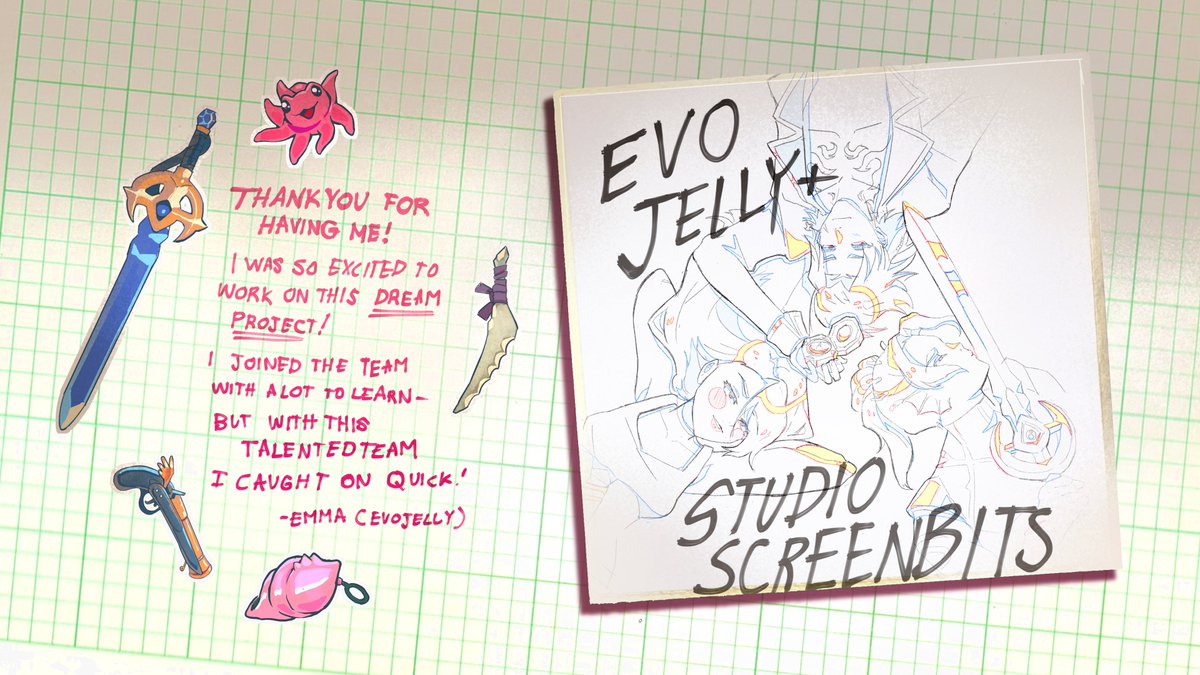 THANKYOU FOR
HAVING ME!
I WAS SO EXCITED TO
WORK ON THIS DREAM
PROJECT!
I JOINED THE TEAM
WITH A LOT TO LEARN-
BUT WITH THIS
TALENTED TEAM
I CAUGHT ON QUICK!
-EMMA (EVOJELLY)
EVO
JELLY+
STUDIO
SCREENBITS